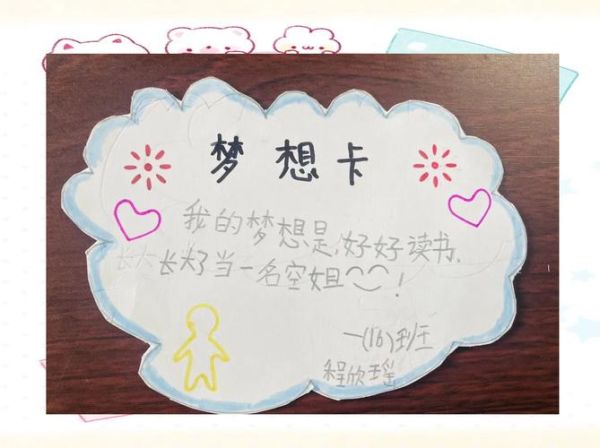 梦想卡
我的梦想是,好好读书,
长大了当一名空姐!
一(16)班
程欣瑶